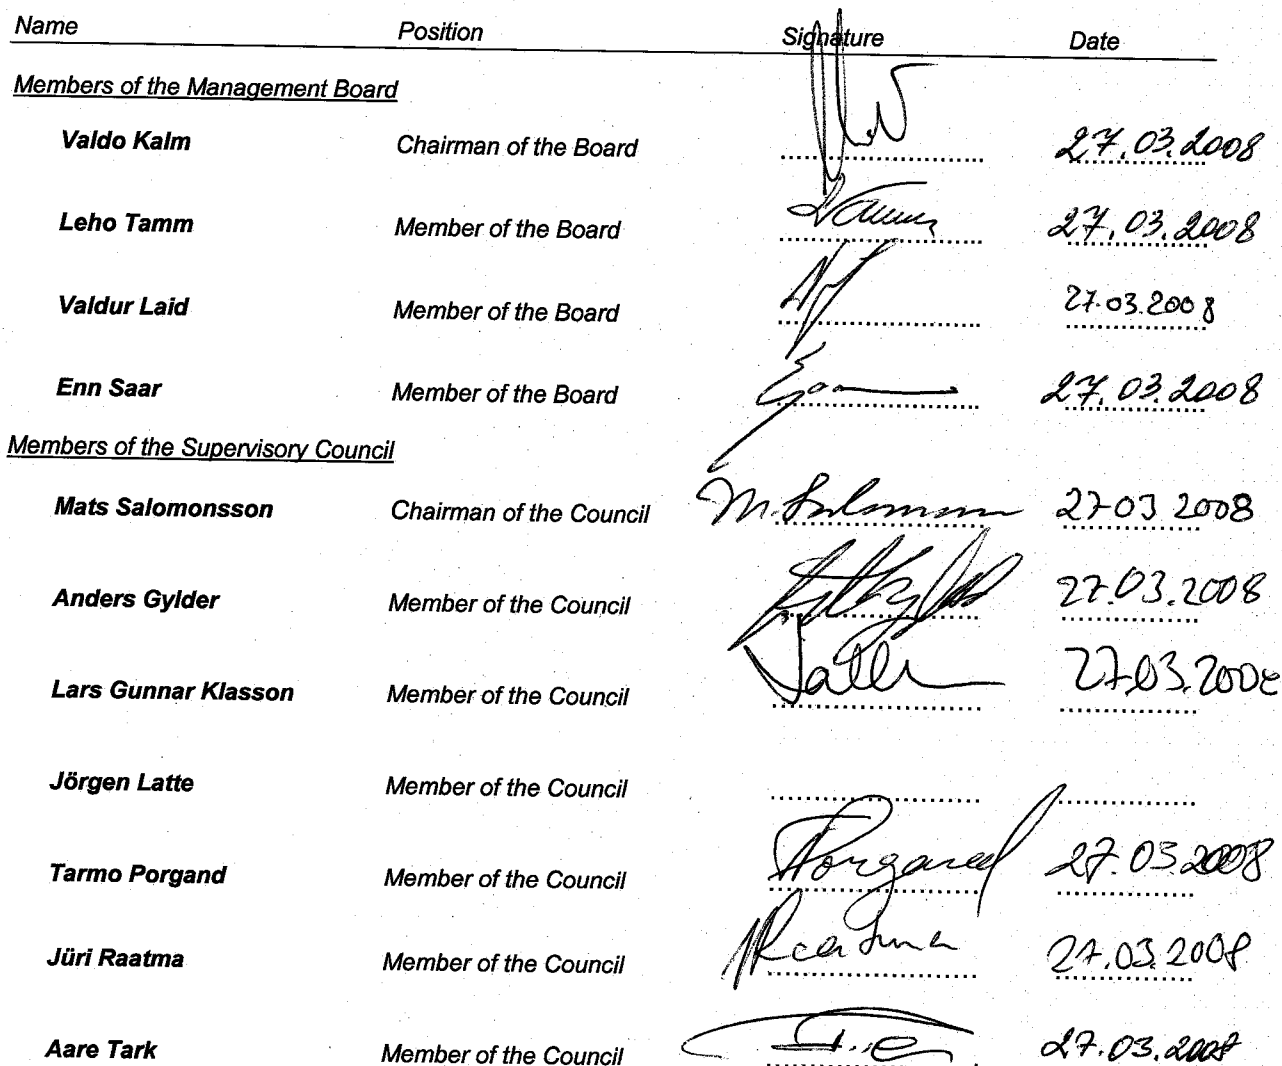 Name Position Signature Date
Members of the Management Board
Valdo Kalm Chairman of the Board 27.03.2008
Leho Tamm Member of the Board Tamm 27.03.2008
Valdur Laid Member of the Board 27.03.2008
Enn Saar Member of the Board 27.03.2008
Members of the Supervisory Council
Mats Salomonsson Chairman of the Council 27 03 2008
Anders Gylder Member of the Council 27.03.2008
Lars Gunnar Klasson Member of the Council 27.03.2008
Jörgen Latte Member of the Council
Tarmo Porgand Member of the Council Porgand 27.03.2008
Jüri Raatma Member of the Council Raatma 27.03.2008
Aare Tark Member of the Council 27.03.2008